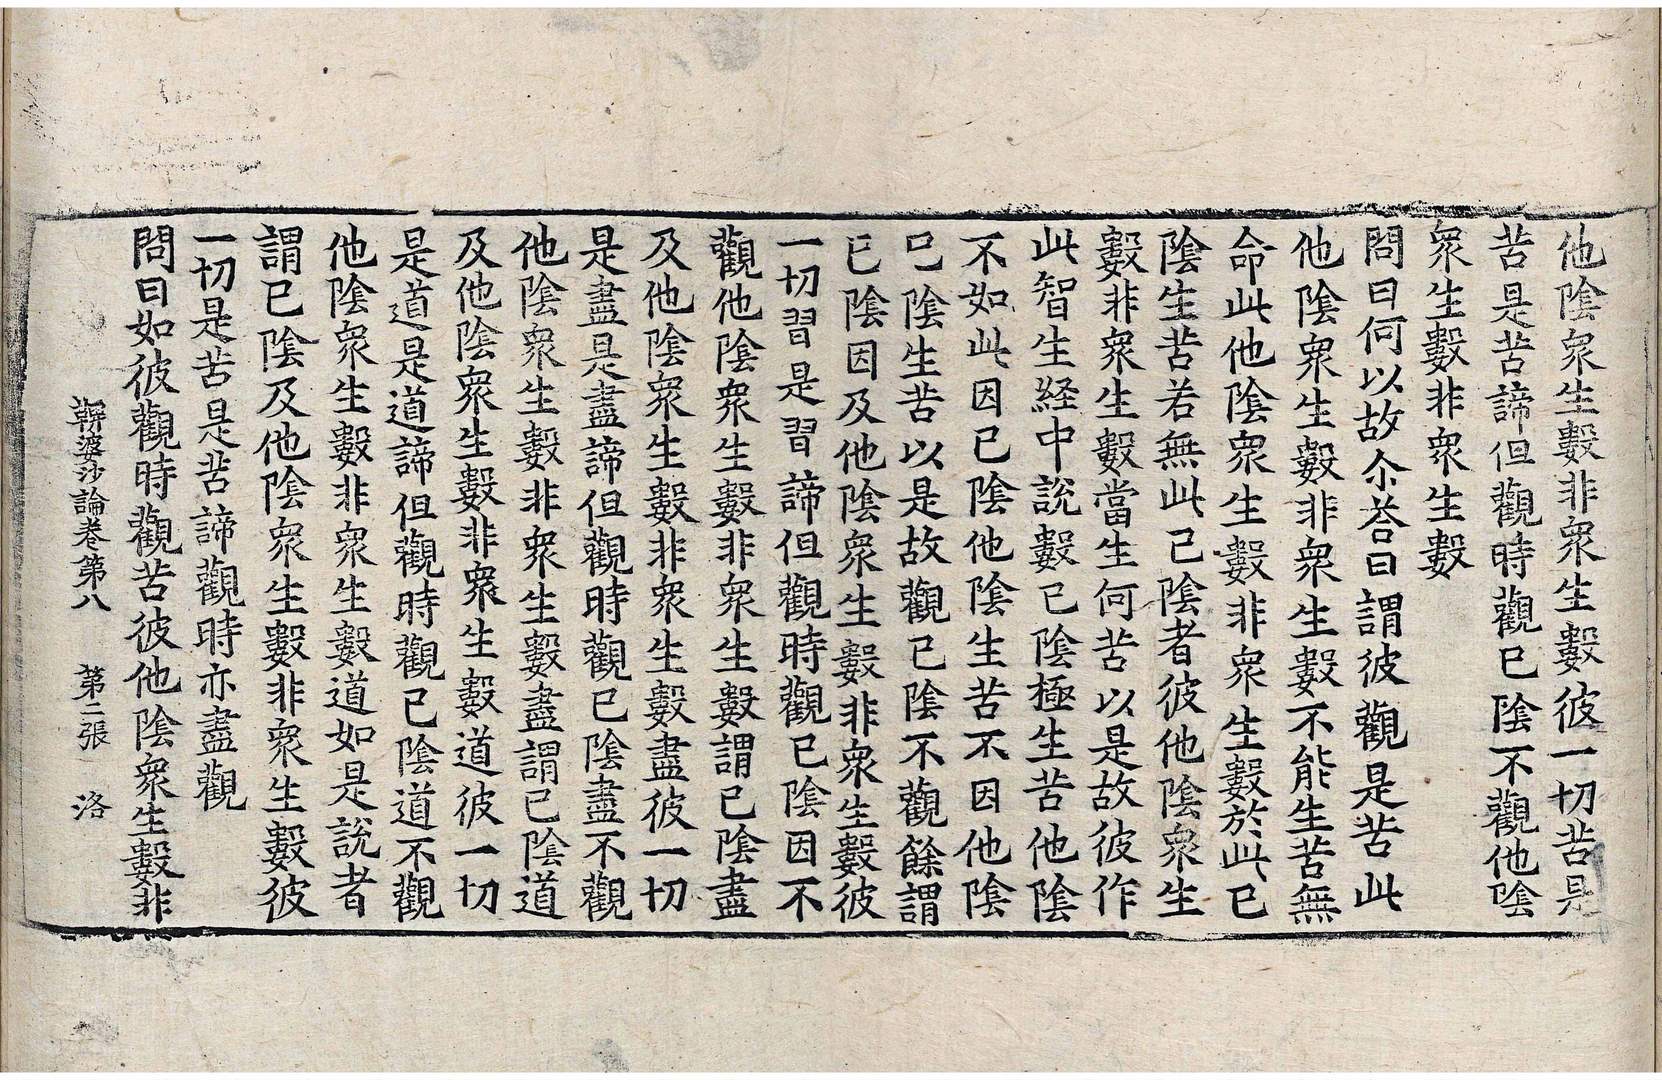 他陰衆生數非衆生數彼一切苦是
苦是苦諦但觀時觀已陰不觀他陰
衆生數非衆生數
問曰何以故尒荅曰謂彼觀是苦此
他陰衆生數非衆生數不能生苦無
命此他陰衆生數非衆生數於此已
陰生苦若無此已陰者彼他陰衆生
數非衆生數當生何苦以是故彼作
此智生経中說數已陰極生苦他陰
不如此因已陰他陰生苦不因他陰
已陰生苦以是故觀已陰不觀餘謂
已陰因及他陰衆生數非衆生數彼
一切習是習諦但觀時觀已陰因不
觀他陰衆生數非衆生數謂已陰盡
及他陰衆生數非衆生數盡彼一切
是盡是盡諦但觀時觀已陰盡不觀
他陰衆生數非衆生數盡謂已陰道
及他陰衆生數非衆生數道彼一切
是道是道諦但觀時觀已陰道不觀
他陰衆生數非衆生數道如是說者
謂已陰及他陰衆生數非衆生數彼
一切是苦是苦諦觀時亦盡觀
問曰如彼觀時觀苦彼他陰衆生數非
鞞婆沙論卷第八 第二張 洛